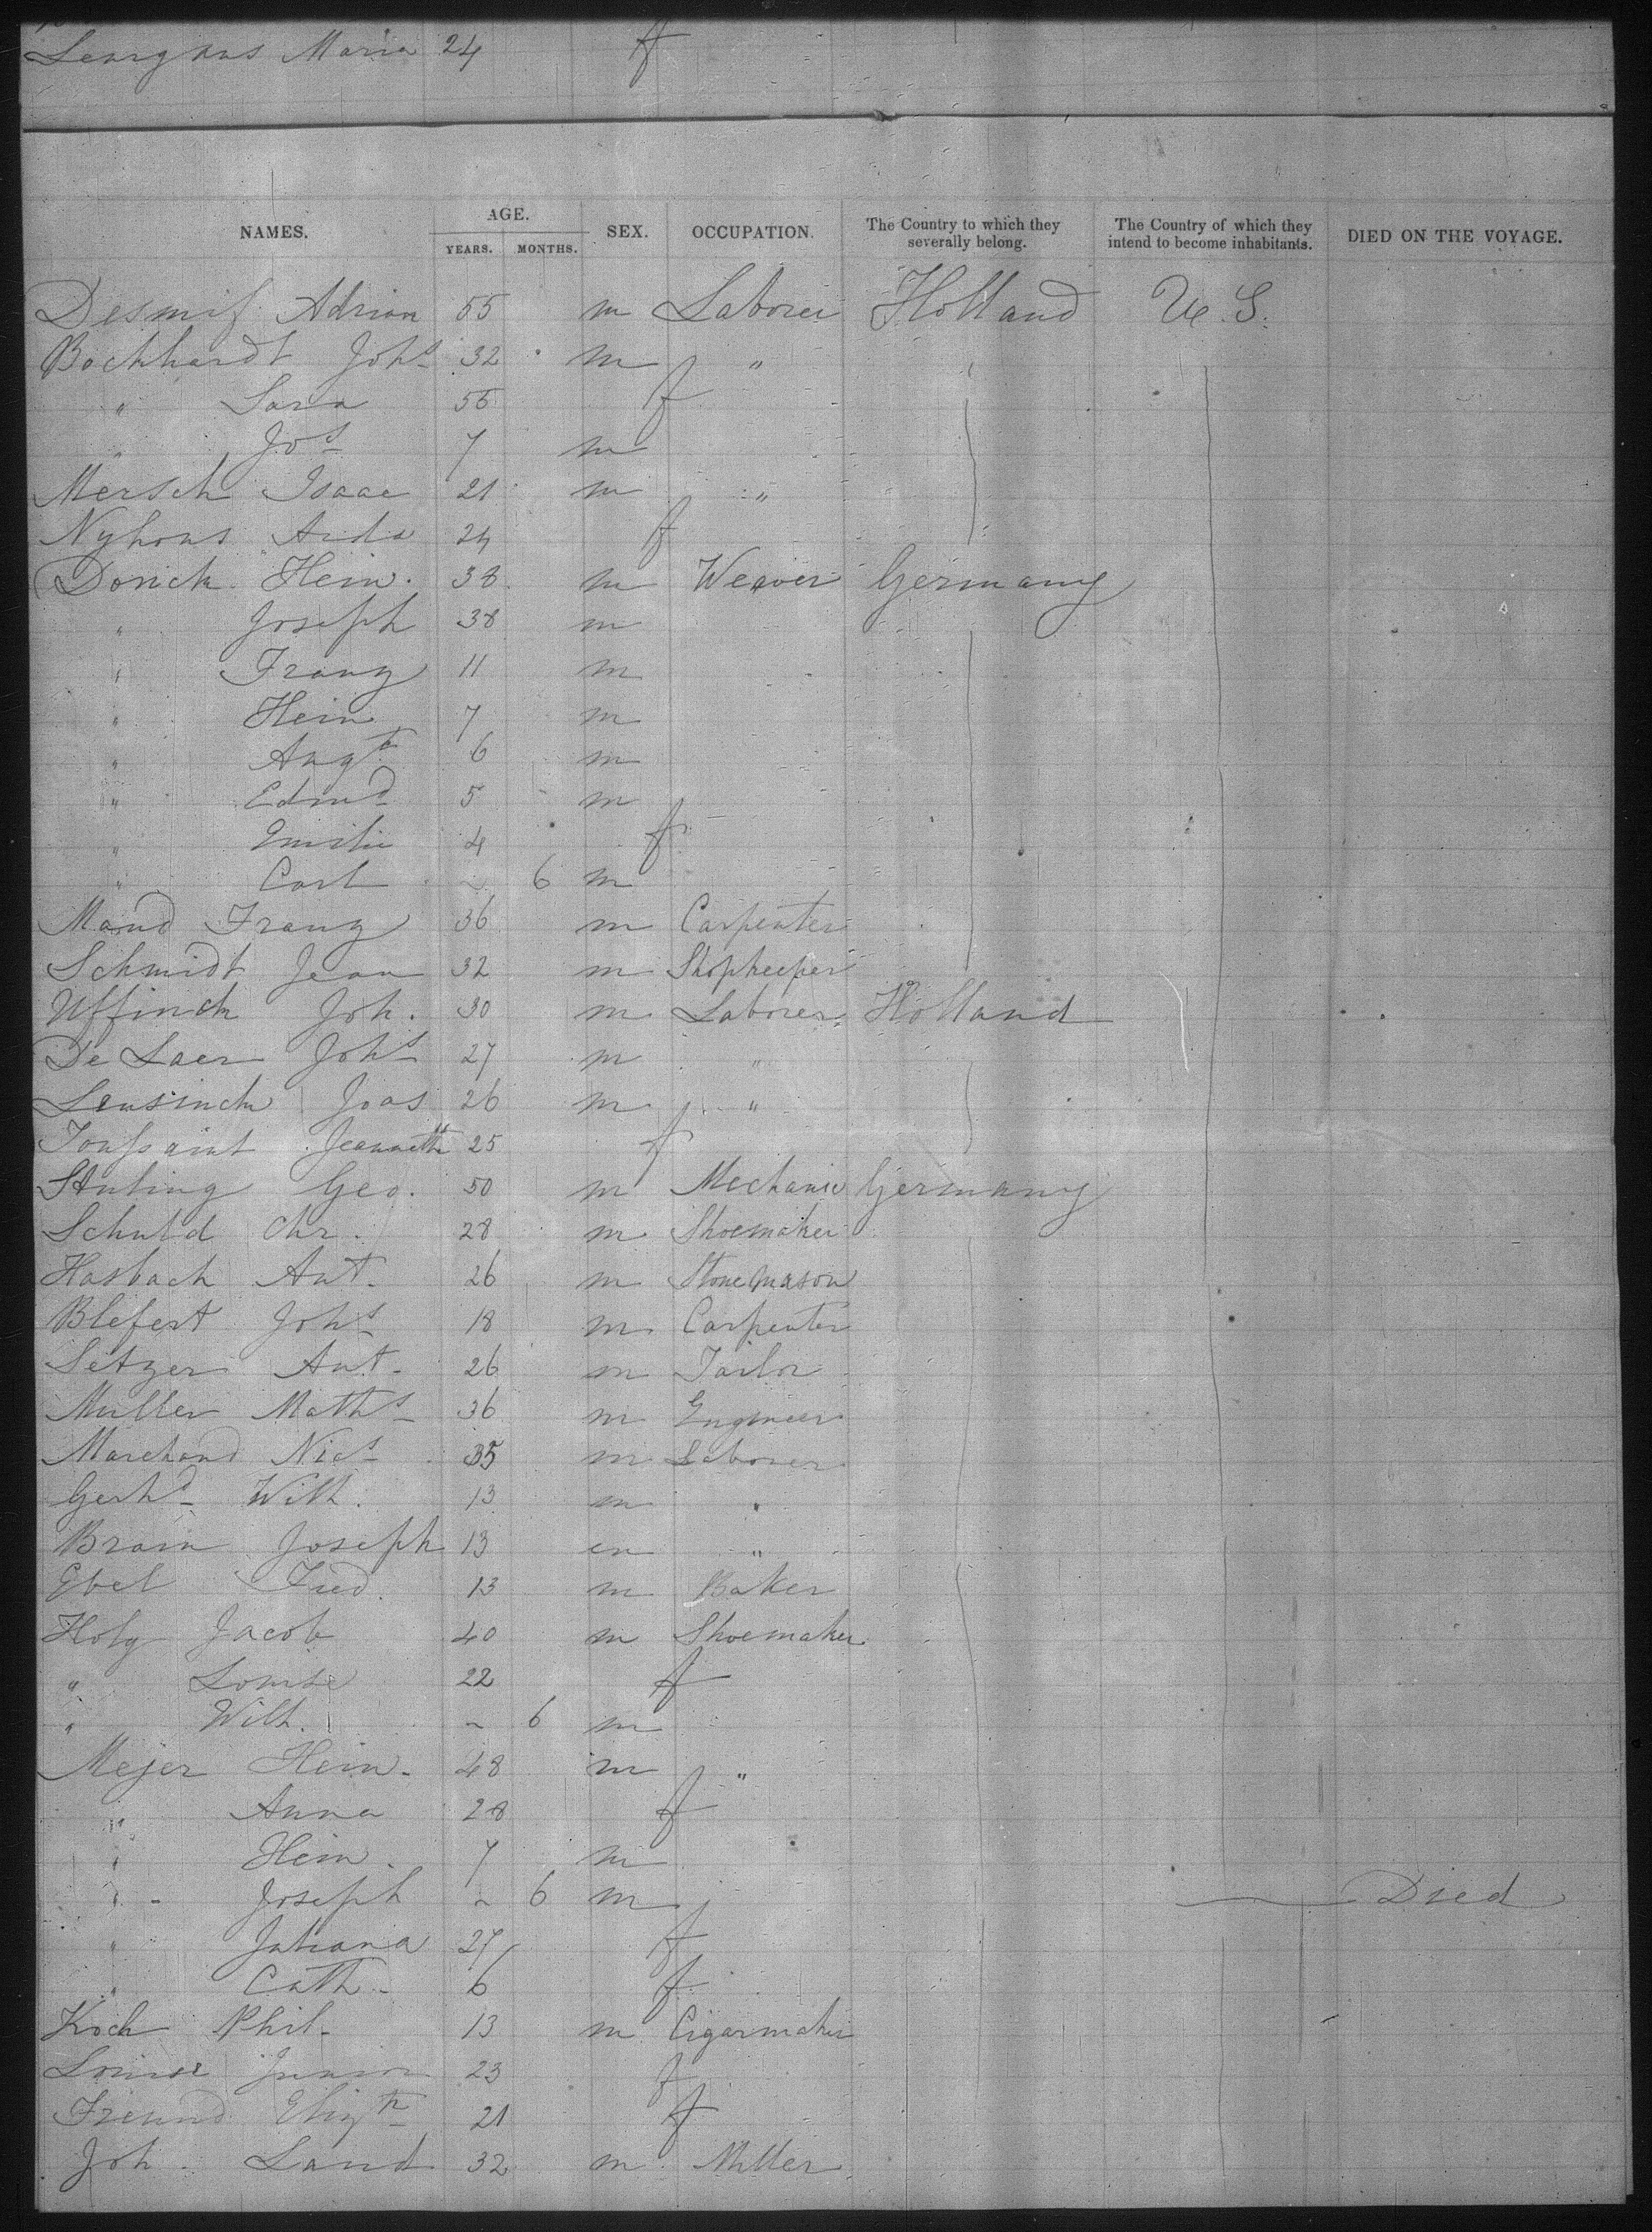 Maria 24 f
NAMES. AGE. YEARS. MONTHS. SEX. OCCUPATION. The Country to which they severally belong. The Country of which they intend to become inhabitants. DIED ON THE VOYAGE.
Adrian 55 m Laborer Holland U.S.
Bockhardt Johs 32 m "
" Sara 55 f
" Jos 7 m
Mersch Isaac 21 m "
Nyhous Aida 24 f
Dorick Hein. 38 m Weaver Germany
" Joseph 38 m
" Franz 11 m
" Hein 7 m
" Augt 6 m
" Edmd 5 m
" Emilie 4 f
" Carl ~ 6 m
Mand Franz 36 m Carpenter
Schmidt Jean 32 m Shopkeeper
Uffinck Joh. 30 m Laborer Holland
De Laer Johs 27 m "
Lensinck Joas 26 m "
Toussaint Jeannette 25 f
Stuting Geo. 50 m Mechanic Germany
Schuld Chr. 28 m Shoemaker
Hasbach Ant. 26 m Stonemason
Blefert Johs 18 m Carpenter
Setzer Ant. 26 m Tailor
Muller Maths 36 m Engineer
Marchand Nics 35 m Laborer
Gerhd Wilh. 13 m "
Brain Joseph 13 m "
Ebel Fred. 13 m Baker
Holy Jacob 40 m Shoemaker
" Louise 22 f
" Wilh. ~ 6 m
Mejer Hein. 48 m "
" Anna 28 f
" Hein. 7 m
" Joseph ~ 6 m Died
" Juliana 27 f
" Cath. 6 f
Koch Phil. 13 m Cigarmaker
Louise Junior 23 f
Freund Elizth 21 f
Joh. Land 32 m Miller